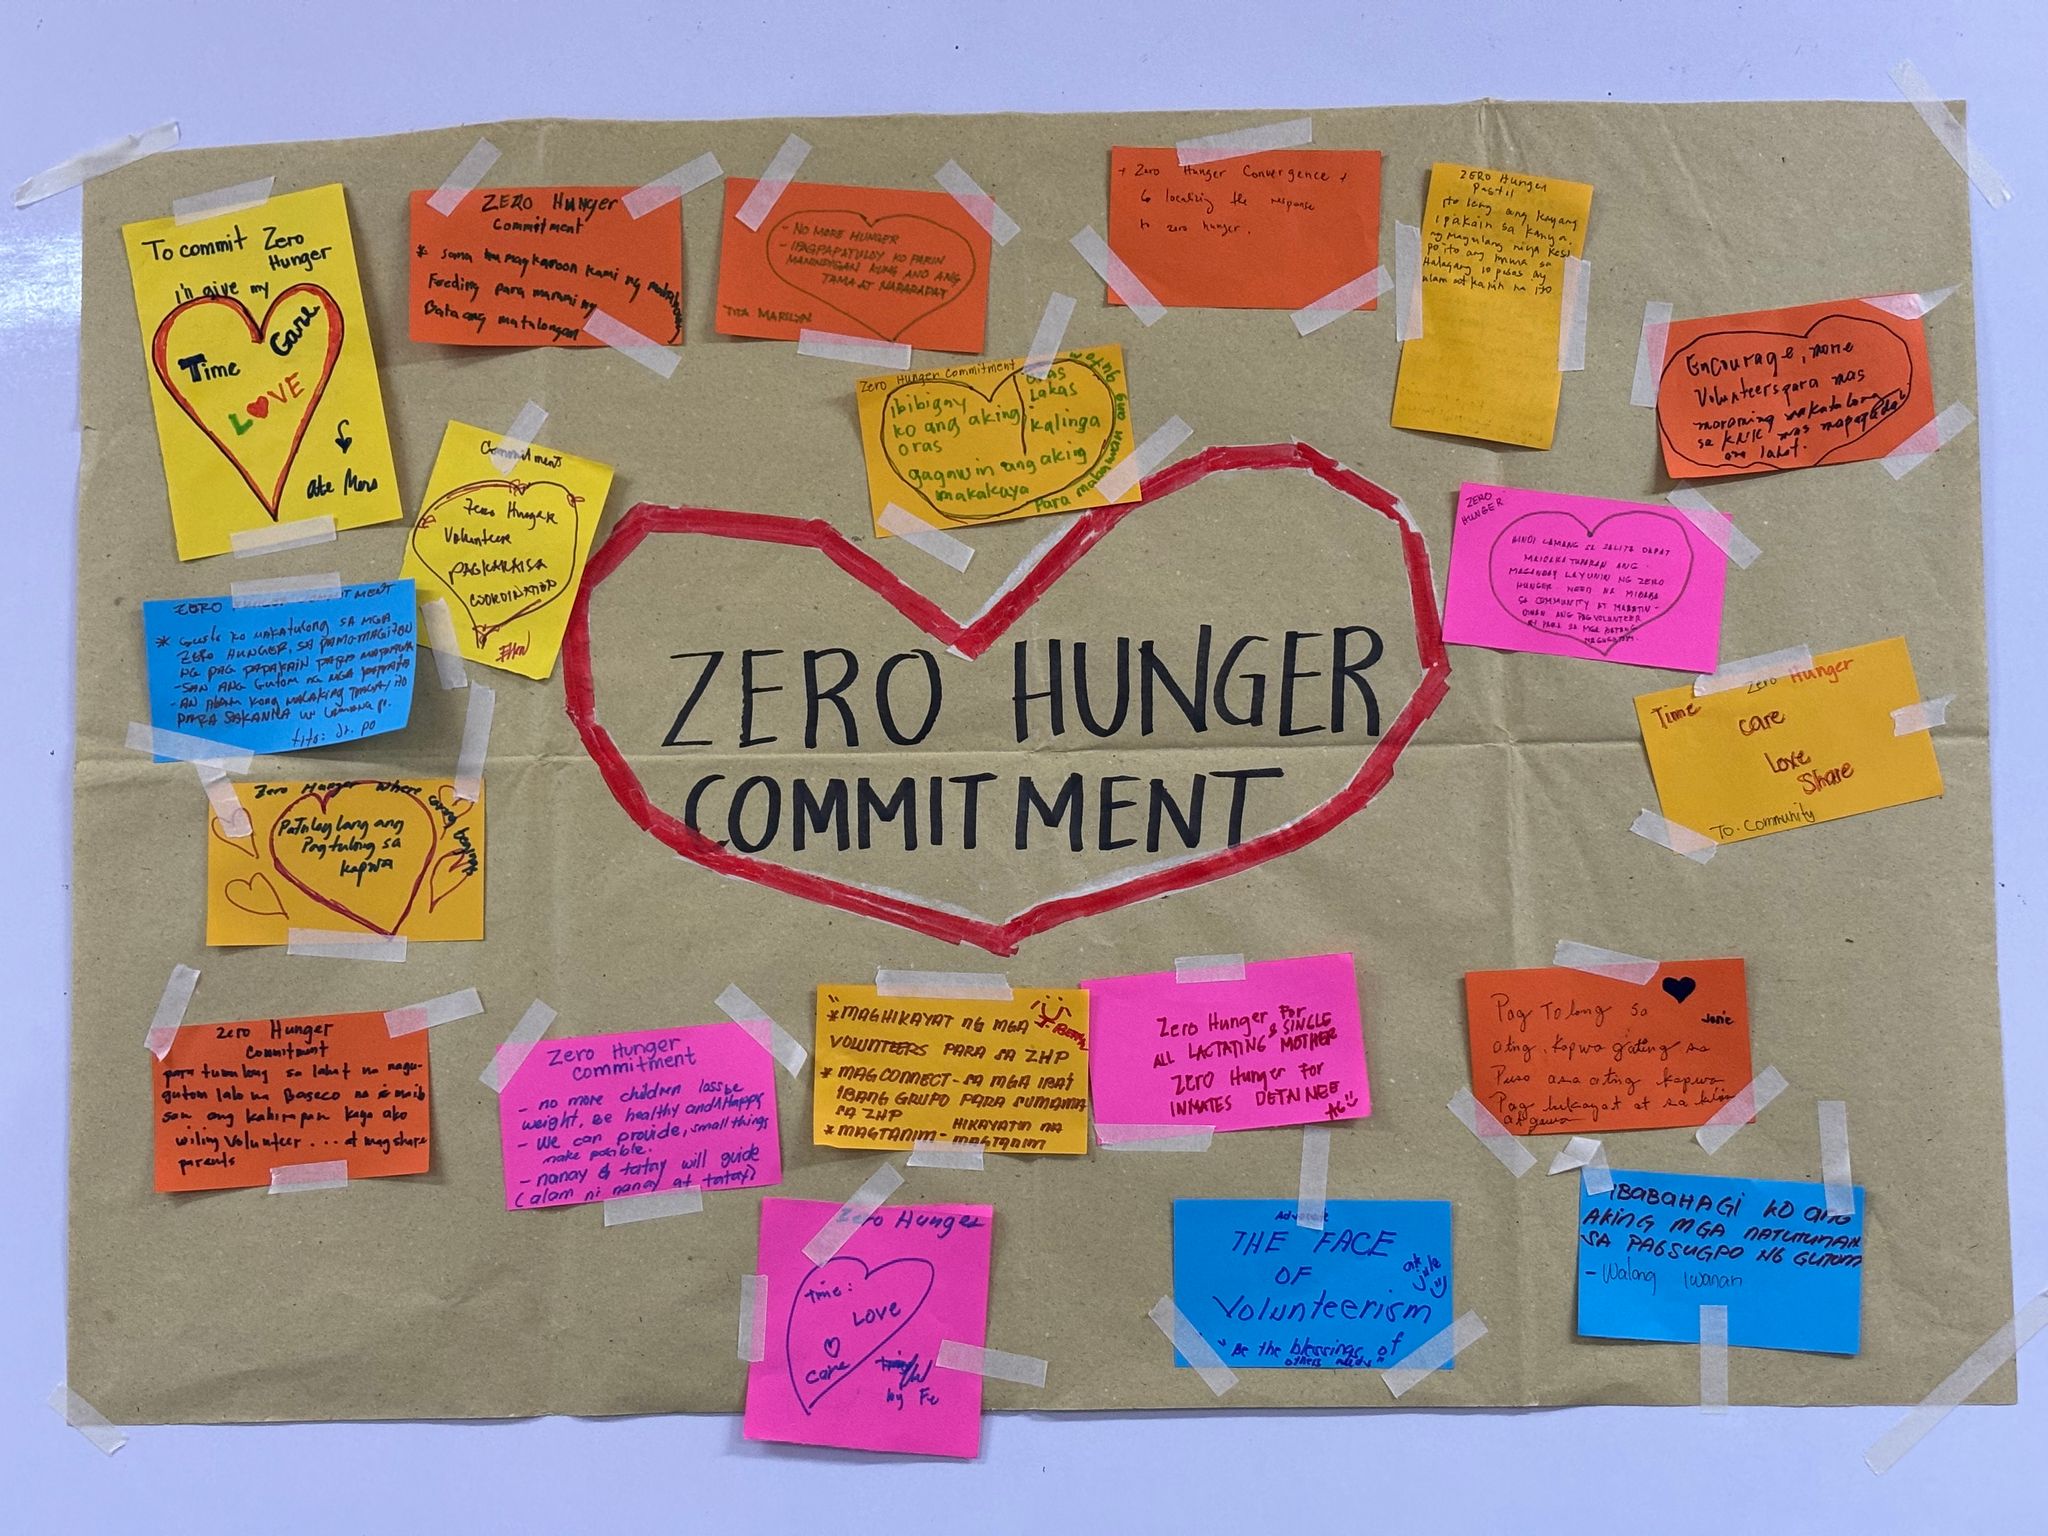 To commit Zero
Hunger
i'll give my
Time
Care
LOVE
ate Mers
ZERO Hunger
Commitment
* sana magkaroon kami ng
Feeding para marami ng
Bata ang matulongan
- NO MORE HUNGER
- IPAGPAPATULOY KO PARIN
MANINDIGAN KUNG ANO ANG
TAMA AT NARARAPAT
TITA MARILYN
Zero Hunger Convergence
localizing the response
to zero hunger.
ZERO Hunger
Pastil
ito lang ang kayang
ipakain sa kanya
ng magulang niya kasi
po ito ang mura sa
Halagang 10 pesos ay
ulam at kanin na ito
Encourage, more
Volunteers para mas
maraming makatulong
sa
Zero Hunger Commitment
ibibigay
ko ang aking
oras
oras
Lakas
kalinga
gagawin ang aking
makakaya
para mabawasan ang
gutom
Commitments
Zero Hunger
Volunteers
PAGKAKAISA
COORDINATION
Ellen
ZERO HUNGER COMMITMENT
* Gusto ko makatulong sa MGA
ZERO HUNGER, SA PAMAMAGITAN
NG PAG PAPAKAIN
-SAN ANG Gutom NG MGA
-AN Alam kong malaking
PARA SAKANILA
tito: Jr. po
ZERO
HUNGER
HINDI LAMANG SA SALITA DAPAT
MAISAKATUPARAN ANG
MAGANDAY LAYUNIN NG ZERO
HUNGER. NEED NA MIBABA
SA COMMUNITY AT
ANG PAGVOLUNTEER
PARA SA MGA BATANG
NAGUGUTOM.
Zero Hunger
Time
care
Love
Share
To-Community
ZERO HUNGER
COMMITMENT
Zero Hunger Where
Patuloy lang ang
Pagtulong sa
kapwa
Zero Hunger
Commitment
para tumulong sa lahat na nagu-
gutom lalo na Baseco na
san ang kahirapan kaya ako
wiling Volunteer ... at magshare
parents
Zero Hunger
Commitment
- no more children loss be
weight, Be healthy and Happy
- We can provide, small things
make posible.
- nanay & tatay will guide
(alam ni nanay at tatay)
* MAGHIKAYAT NG MGA
VOLUNTEERS PARA SA ZHP
* MAGCONNECT - SA MGA IBA'T
IBANG GRUPO PARA SUMAMA
SA ZHP HIKAYATIN NA
* MAGTANIM - MAGTANIM
Zero Hunger For
ALL LACTATING & SINGLE MOTHER
ZERO Hunger For
INMATES DETAINEE
AG
Pag Tolong sa
ating kapwa gating sa
Puso asa ating kapwa
Pag hikayat at sa
at gawa
Janie
Zero Hunger
time:
Love
care
by Fe
Advocate
THE FACE
OF
Volunteerism
"Be the blessings of
others needs"
ate Jule
IBABAHAGI KO ANG
AKING MGA NATUTUNAN
SA PAGSUGPO NG GUTOM
- Walang Iwanan